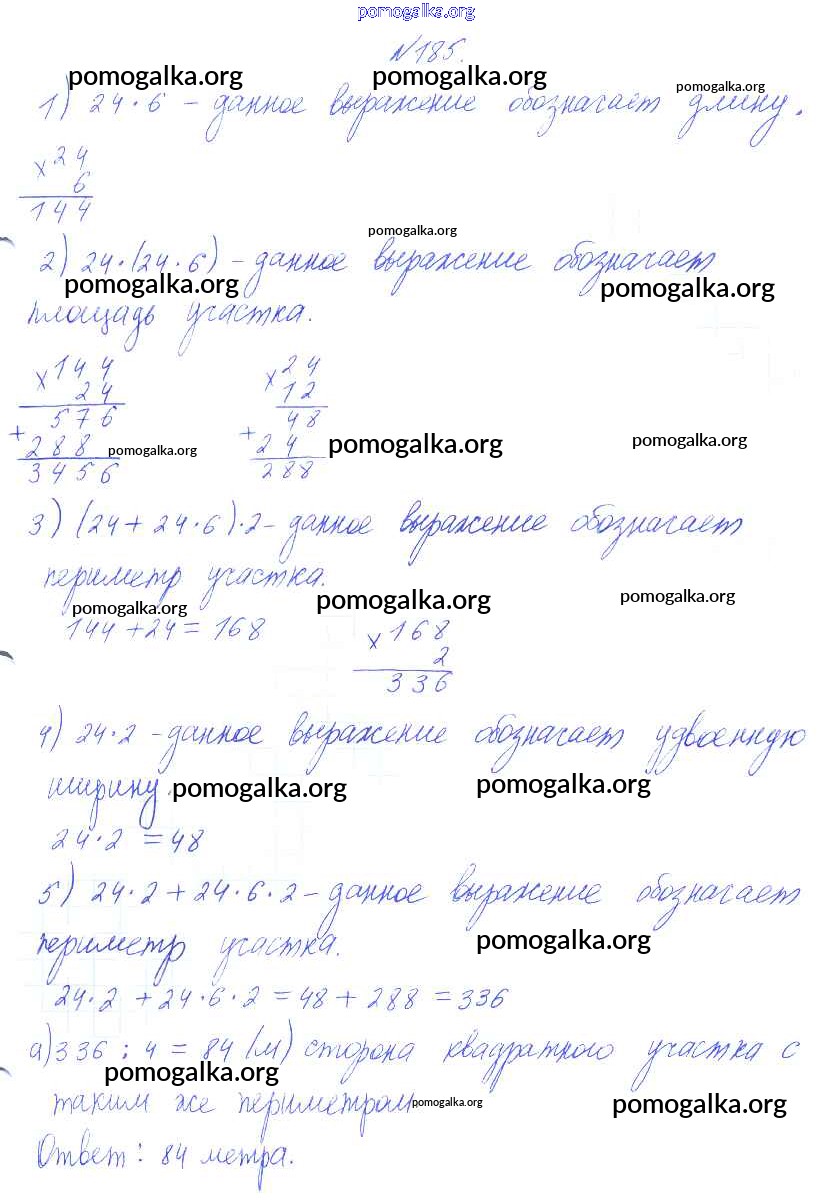 pomogalka.org
№185.
pomogalka.org pomogalka.org pomogalka.org
1) 24·6 - данное выражение обозначает длину.
×24
6
144
pomogalka.org
2) 24·(24·6) - данное выражение обозначает
pomogalka.org pomogalka.org
площадь участка.
×144 ×24
24 12
576 48
+288 +24
pomogalka.org pomogalka.org pomogalka.org
3456 288
3) (24+24·6)·2 - данное выражение обозначает
периметр участка.
pomogalka.org pomogalka.org pomogalka.org
144+24=168 ×168
2
336
4) 24·2 - данное выражение обозначает удвоенную
ширину.
pomogalka.org pomogalka.org
24·2=48
5) 24·2+24·6·2 - данное выражение обозначает
периметр участка.
pomogalka.org
24·2+24·6·2=48+288=336
а) 336:4=84 (м) сторона квадратного участка с
pomogalka.org
таким же периметром
pomogalka.org pomogalka.org
Ответ: 84 метра.